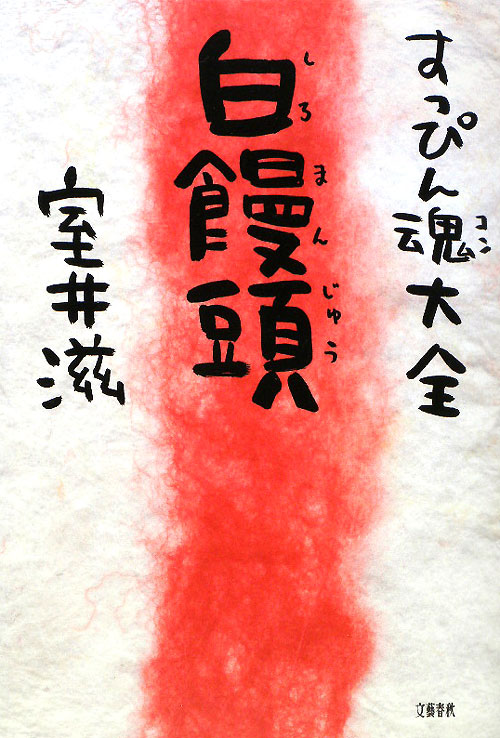 すっぴん魂大全
コン
白饅頭
しろまんじゅう
室井滋
文藝春秋